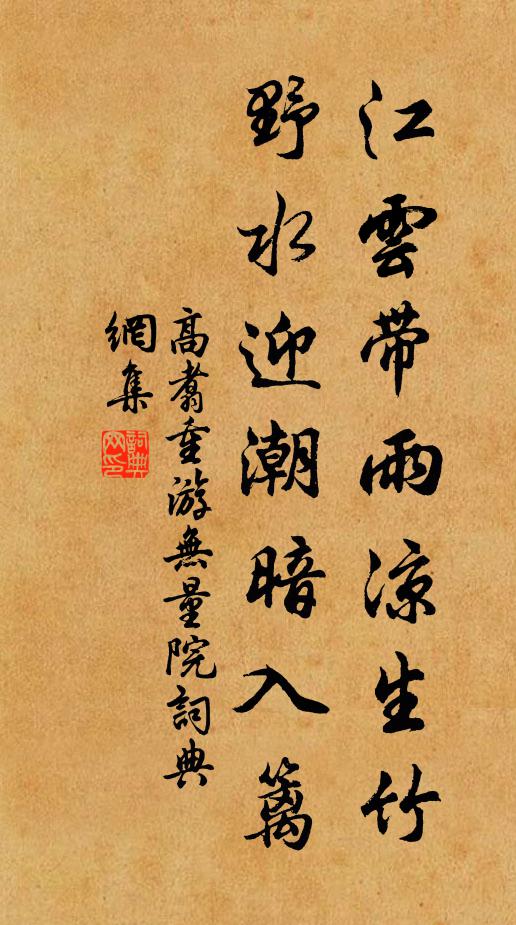 江雲帶雨凉生竹
野水迎潮暗入籬
高翥重游無量院詞典
網集
詞典網印